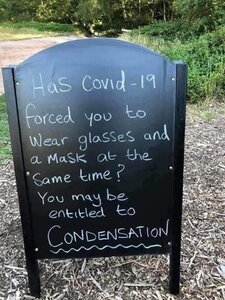 Has Covid-19
forced you to
wear glasses and
a mask at the
same time?
You may be
entitled to
CONDENSATION